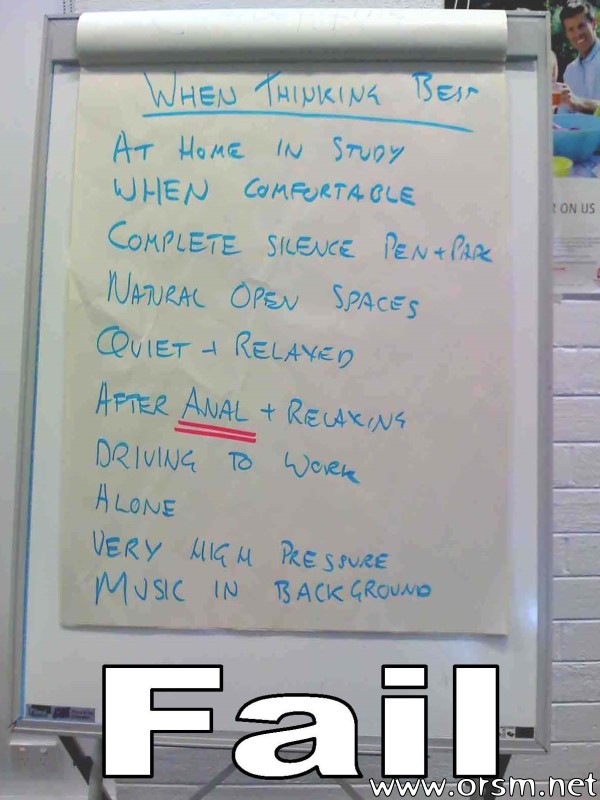 WHEN THINKING BEST
AT HOME IN STUDY
WHEN COMFORTABLE
COMPLETE SILENCE PEN + PAPER
NATURAL OPEN SPACES
QUIET + RELAXED
AFTER ANAL + RELAXING
DRIVING TO WORK
ALONE
VERY HIGH PRESSURE
MUSIC IN BACKGROUND
ON US
Fail
www.orsm.net